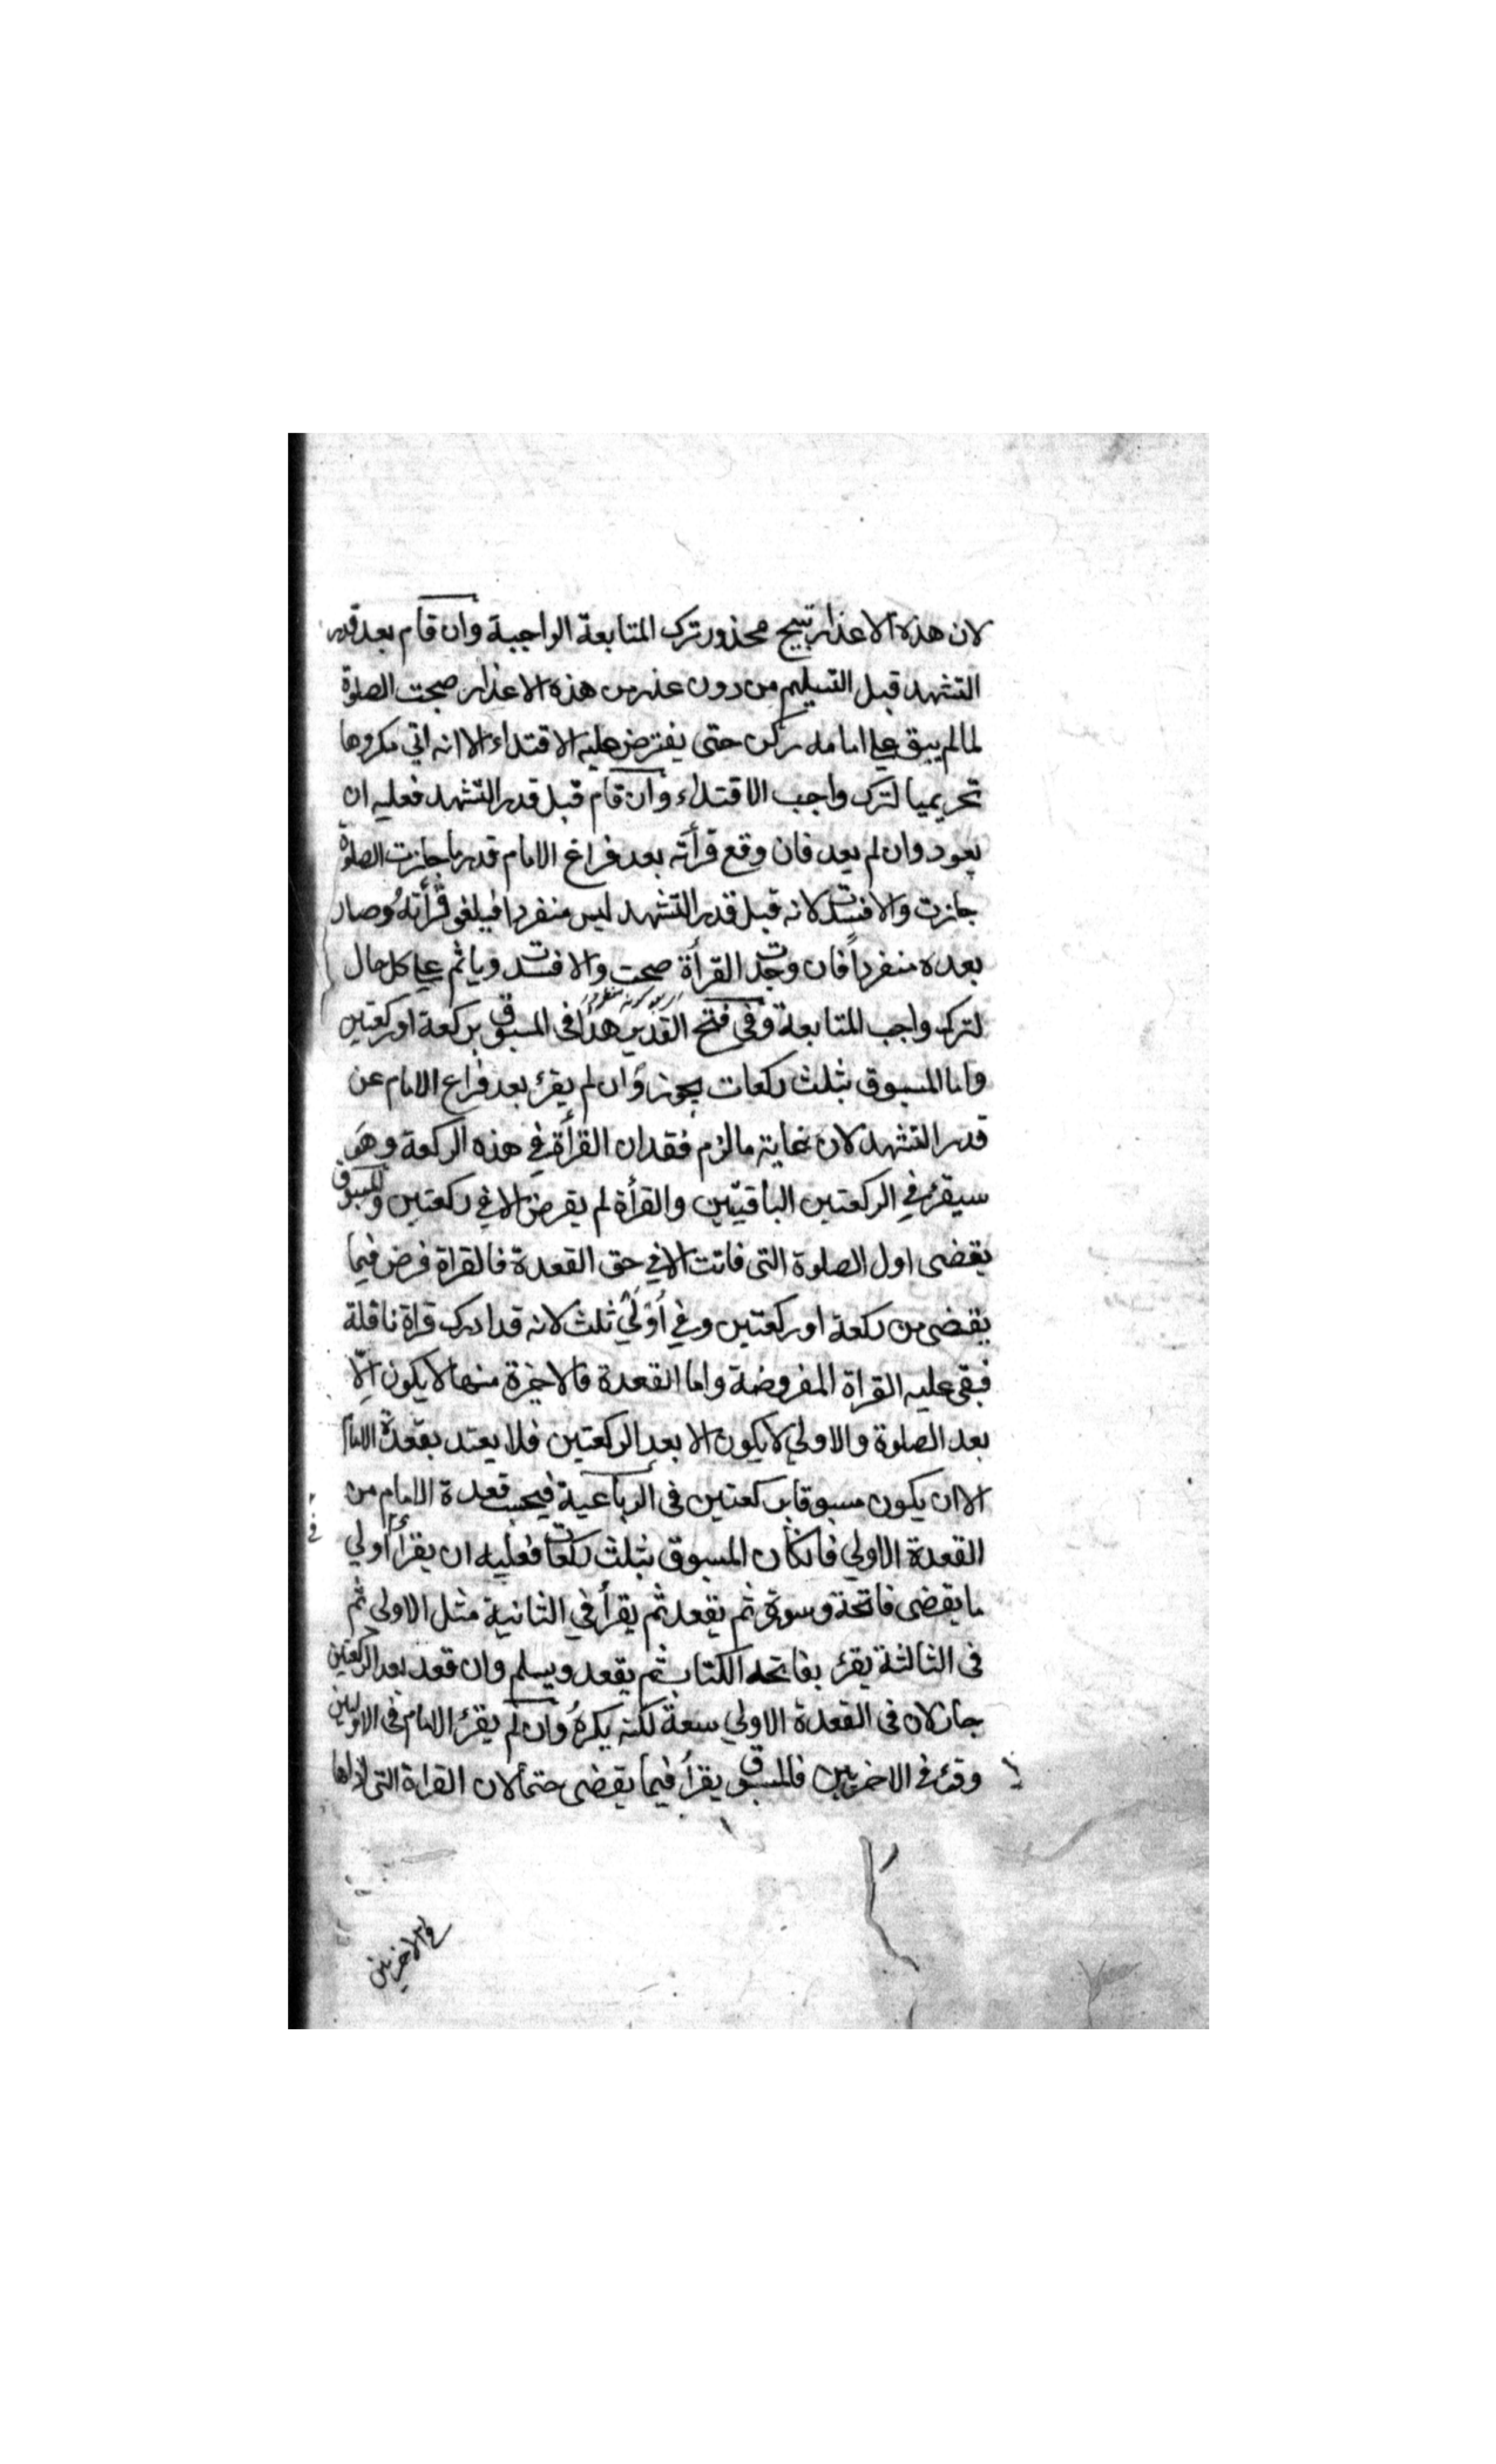 لان هذه الاعذار تبيح محذور ترك المتابعة الواجبة وان قام بعد قدر
التشهد قبل التسليم من دون عذر من هذه الاعذار صحت الصلوة
لما لم يبق علي امامه ركن حتى يفترض عليه الاقتداء الا انه اتي مكروها
تحريميا لترك واجب الاقتداء وان قام قبل قدر التشهد فعليه ان
يعود وان لم يعد فان وقع قرأته بعد فراغ الامام قدر ما جازت الصلوة
جازت والا فسدت لانه قبل قدر التشهد ليس منفردا فيلغو قرأته وصار
بعده منفرداً فان وجدت القرأة صحت والا فسدت وياثم علي كل حال
لترك واجب المتابعة وفي فتح القدير هذا في المسبوق بركعة او ركعتين
واما المسبوق بثلث ركعات يجوز وان لم يقرء بعد فراغ الامام عن
قدر التشهد لان غاية ما لزم فقدان القرأة في هذه الركعة وهو
سيقرء في الركعتين الباقيتين والقرأة لم يفرض الا في ركعتين والمسبوق
يقضى اول الصلوة التى فاتت الا في حق القعدة فالقراة فرض فيما
يقضى من ركعة او ركعتين وفي أوّليَ ثلث لانه قد ادرك قراة ناقلة
فبقى عليه القراة المفروضة واما القعدة فالاخيرة منها لا يكون الّا
بعد الصلوة والاولي لا يكون الا بعد الركعتين فلا يعتد بقعدة الامام
الا ان يكون مسبوقا بركعتين فى الرباعية فيحسب قعدة الامام من
القعدة الاولي فان كان المسبوق بثلث ركعات فعليه ان يقرأ أولي
ما يقضى فاتحة وسورة ثم يقعد ثم يقرأ في الثانية مثل الاولى ثم
فى الثالثة يقرء بفاتحه الكتاب ثم يقعد ويسلم وان قعد بعد الركعتين
جاز لان فى القعدة الاولي سعة لكنه يكره وان لم يقرء الامام فى الاوليين
وقرء في الاخريين فالمسبوق يقرأ فيما يقضى حتماً لان القراة التى اداها
في الاخريين